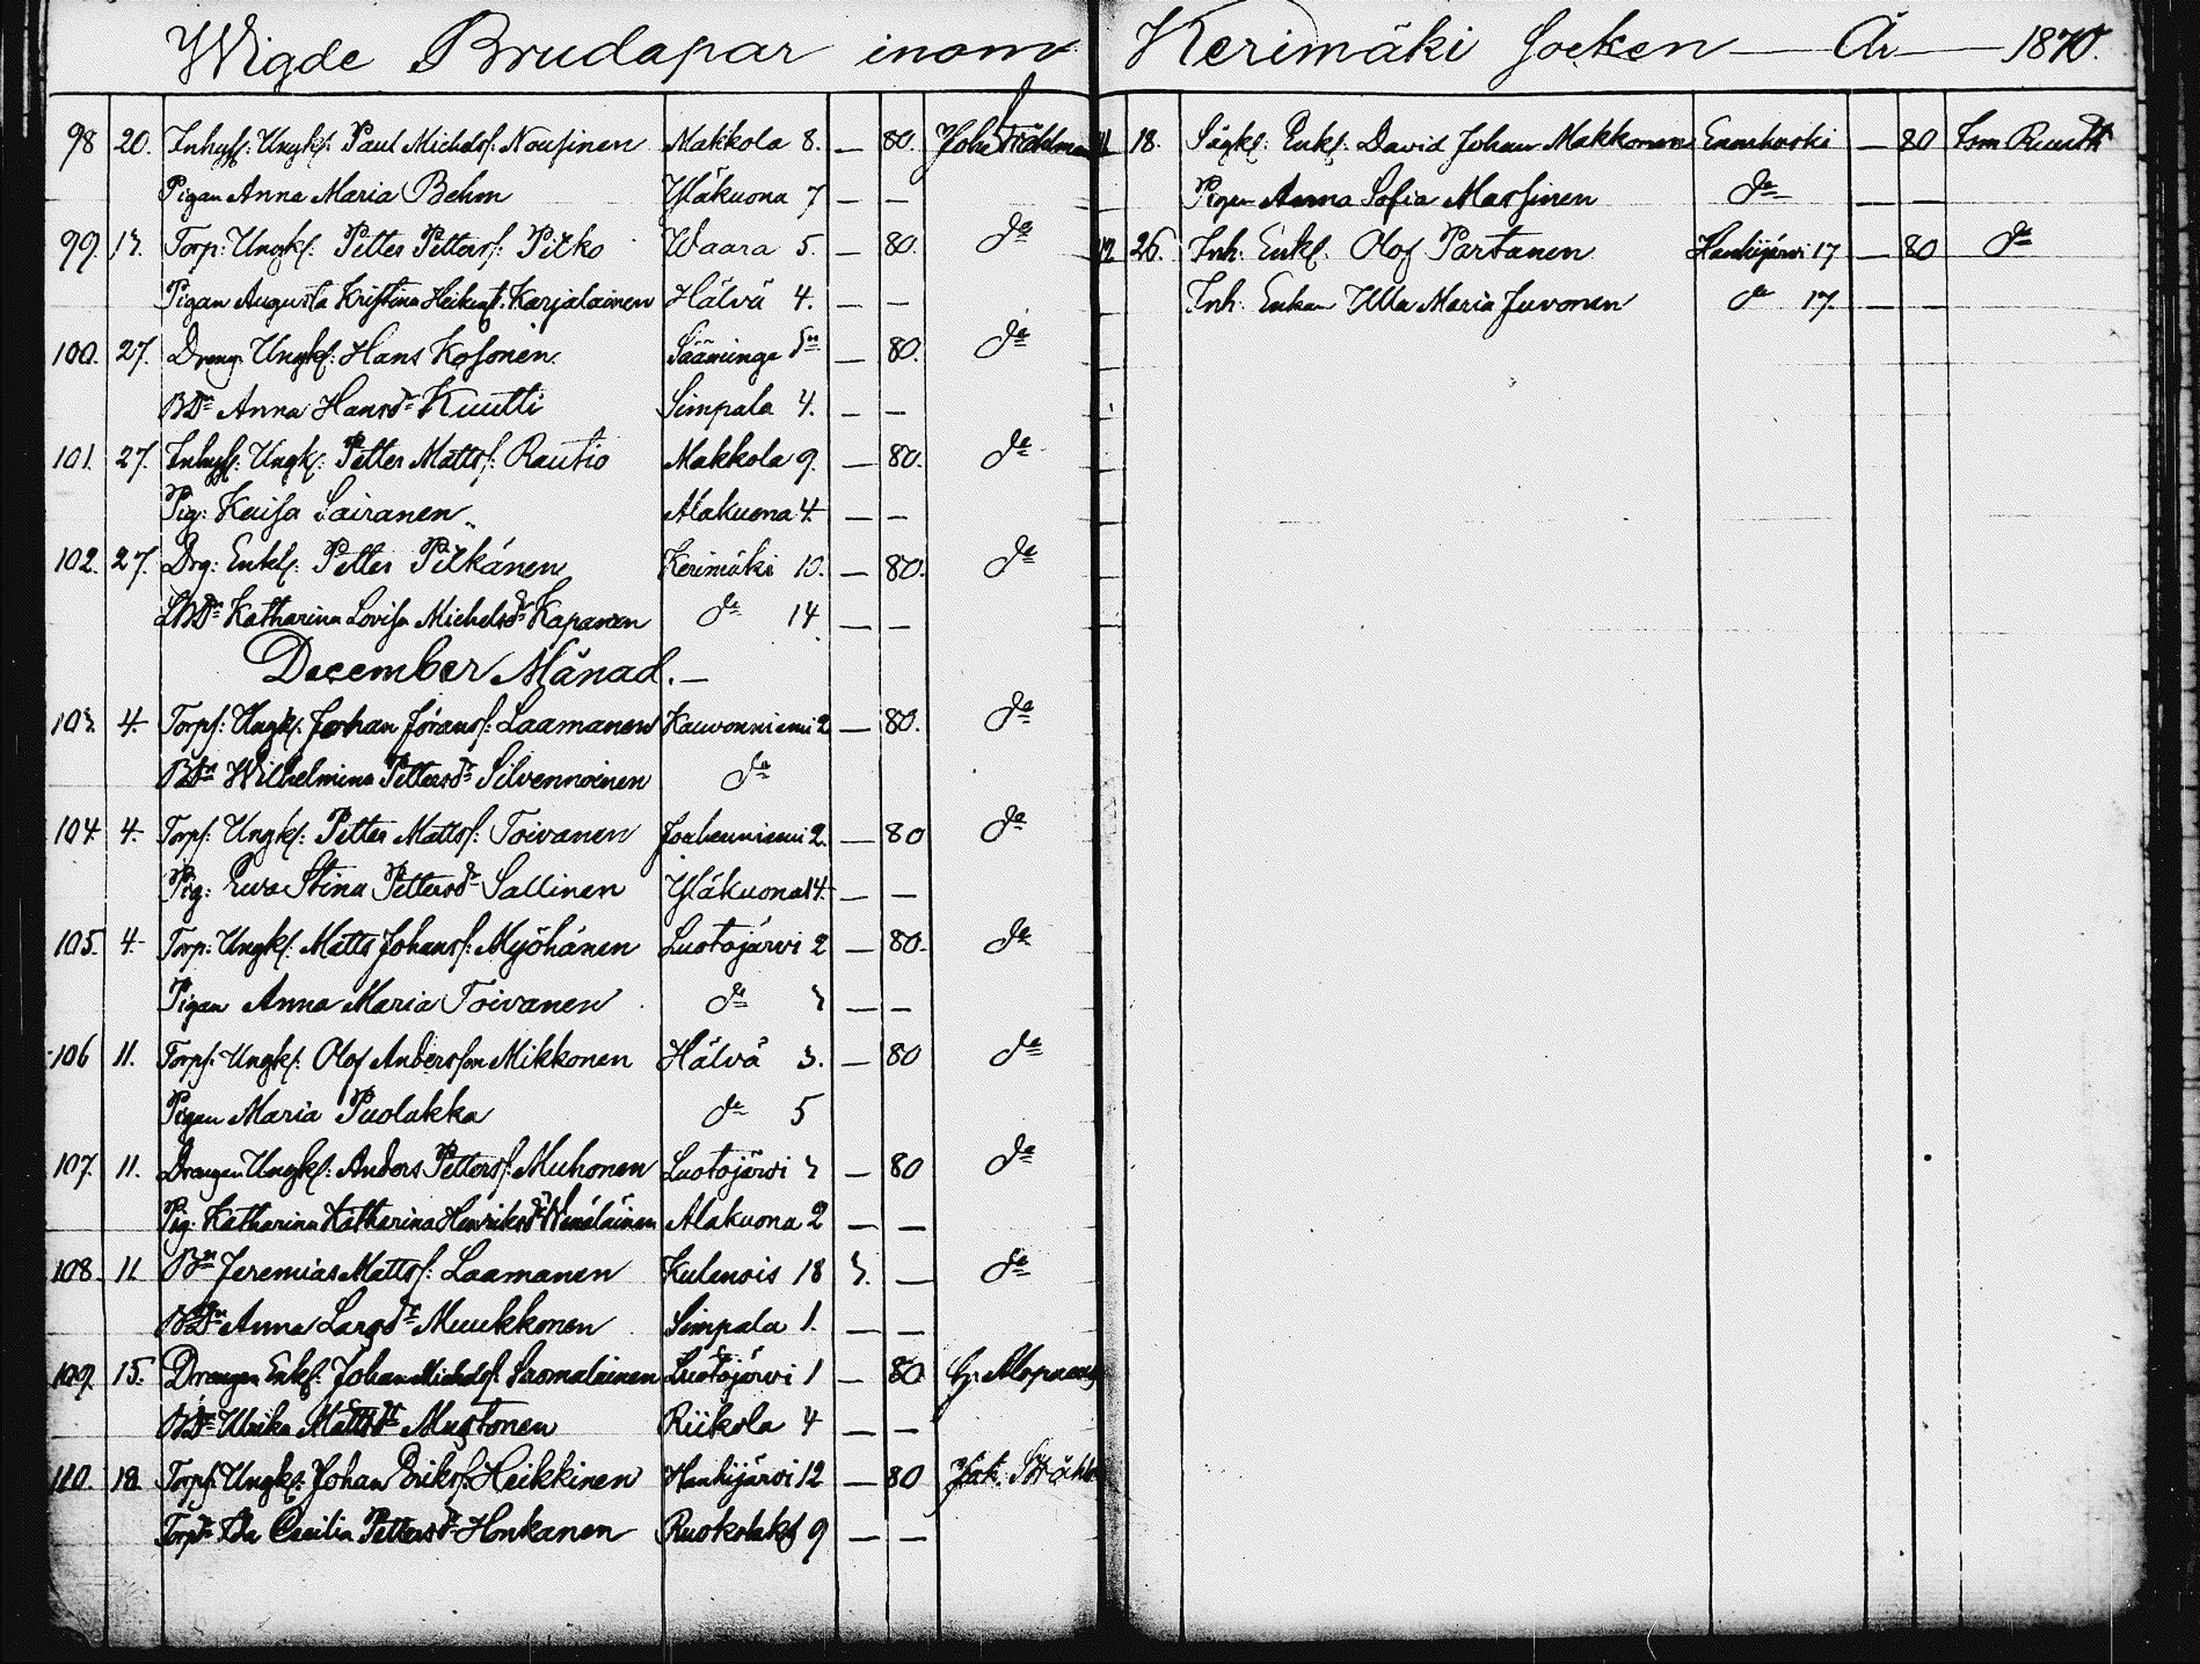 Wigde Brudapar inom Kerimäki Socken — År — 1870.
98 20. Inhyss: Ungk: Paul Michelss: Nousinen Makkola 8. — 80.
Pigan Anna Maria Behm Yläkuona 7 — —
99. 13. Torp: Ungk: Petter Petterss: Pitko Waara 5. — 80. do
Pigan Augusta Kristina Karjalainen Hälvä 4. — —
100. 27. Dreng Ungk: Hans Kosonen Sääminge Sn — 80. do
BDr Anna Hansdr Kuutti Simpala 4. — —
101. 27. Inhyss: Ungk: Petter Matts: Rautio Makkola 9. — 80. do
Pig: Kaisa Sairanen Alakuona 4. — —
102. 27. Drg: Enkl: Petter Pitkänen Kerimäki 10. — 80. do
Katharina Lovisa Michelsdr Kapanen do 14 — —
December Månad. —
103. 4. Torps: Ungk: Johan Jöranss: Laamanen Kauvonniemi 2 — 80. do
BDr Wilhelmina Pettersdr Silvennoinen do
104. 4. Torps: Ungk: Petter Matts: Toivanen Jouhenniemi 2. — 80 do
Pig: Eva Stina Pettersdr Sallinen Yläkuona 14. — —
105. 4. Torp: Ungk: Matts Johanss: Myöhänen Luotojärvi 2 — 80. do
Pigan Anna Maria Toivanen do 3 — —
106 11. Torps: Ungk: Olof Andersson Mikkonen Hälvä 3. — 80 do
Pigan Maria Puolakka do 5
107. 11. Drengen Ungk: Anders Petterss: Muhonen Luotojärvi 3 — 80 do
Pig: Katharina Katharina Henriksdr Wenäläinen Alakuona 2 — —
108. 11. Bn Jeremias Matts: Laamanen Kulenois 18 3. — do
BDr Anna Larsdr Muukkonen Simpala 1. — —
109. 15. Drengen Enkl: Johan Michelss: Suomalainen Luotojärvi 1 — 80
BDr Ulrika Mattsdr Mustonen Riikola 4 — —
110. 18. Torps: Ungk: Johan Erikss: Heikkinen Hanhijärvi 12 — 80
Torpdr Ida Cecilia Pettersdr Honkanen Ruokolaks 9 — —
18. Enkl: David Johan Makkonen Enonkoski — 80
Pigan Anna Sofia Massinen do — —
26. Inh: Enkl: Olof Partanen Hanhijärvi 17 — 80 do
Inh: Enkan Ulla Maria Juvonen do 17. — —